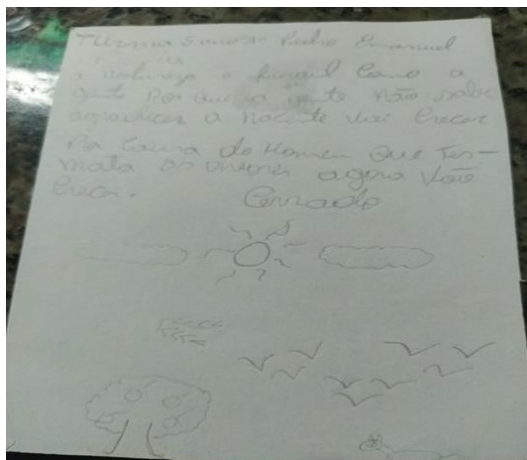 Turma 5 ano Pedro Emanuel
a natureza e fragil Como a
gente por que a gente não sabe
agradecer a nacente vai Crecer
Pa Causa do Homem que
mata as arvores agora vão
Crecer.
Cerrado